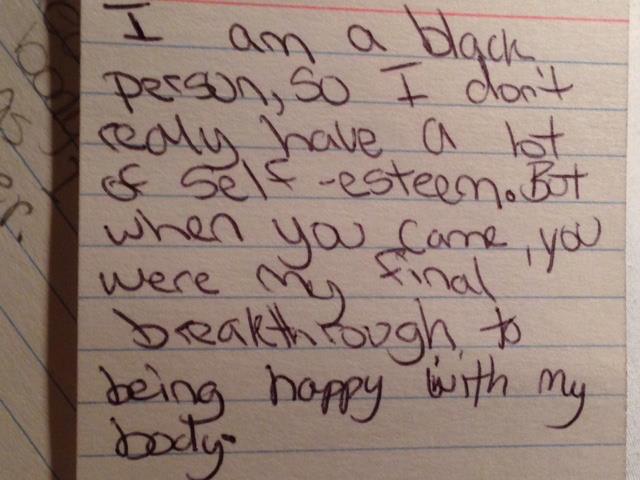 I am a black
person, so I don't
really have a lot
of self-esteem. But
when you came, you
were my final
breakthrough to
being happy with my
body.